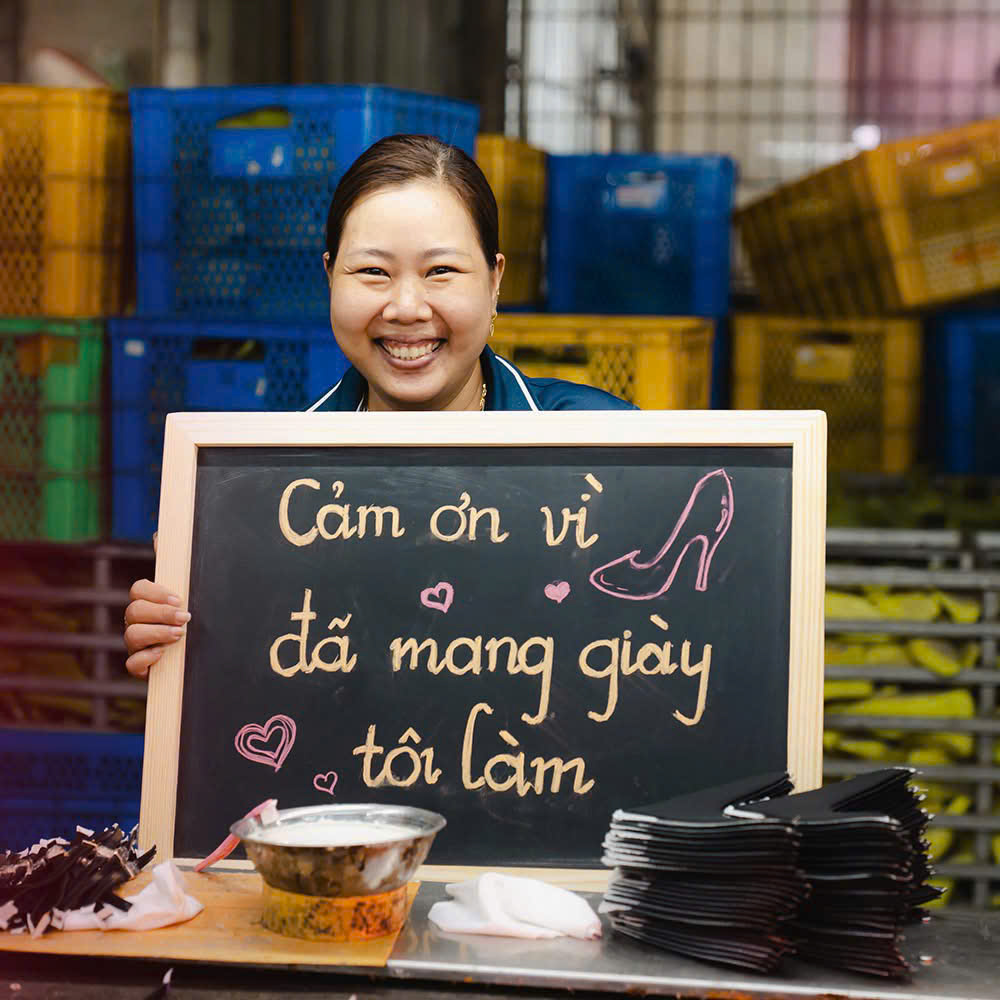 Cảm ơn vì
đã mang giày
tôi làm